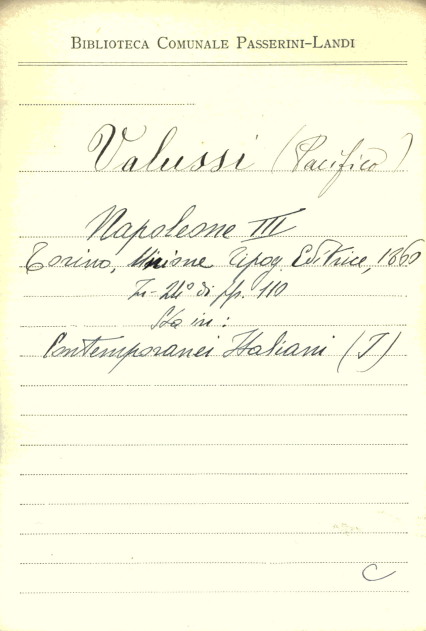 BIBLIOTECA COMUNALE PASSERINI-LANDI
Valussi (Pacifico)
Napoleone III
Torino, Unione Tipog. Editrice, 1860
In-24° di pp. 110
Sta in:
Contemporanei Italiani (I)
C